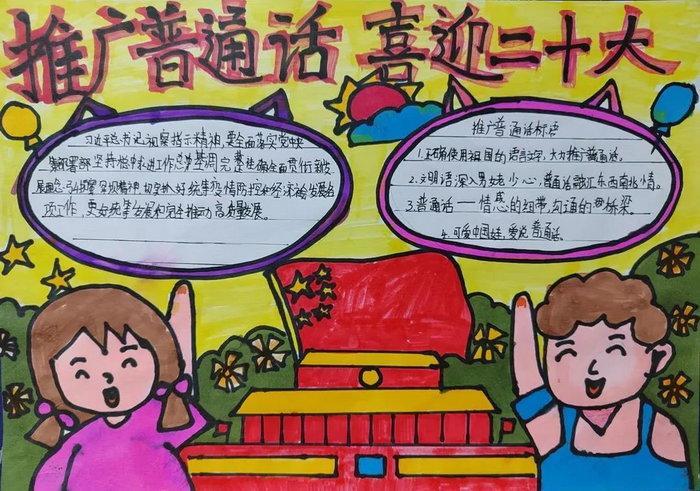 推广普通话 喜迎二十大
习近平总书记视察指示精神,要全面落实党中央
决策部署坚持稳中求进工作总基调完整准确全面贯彻新发
展理念
项工作,更好统筹发展和安全推动高质量发展。
推广普通话标语
1.正确使用祖国的语言文字,大力推广普通话。
2.文明语深入男女老少心,普通话融汇东西南北情。
3.普通话——情感的纽带,沟通的桥梁。
4.可爱中国娃,爱说普通话。